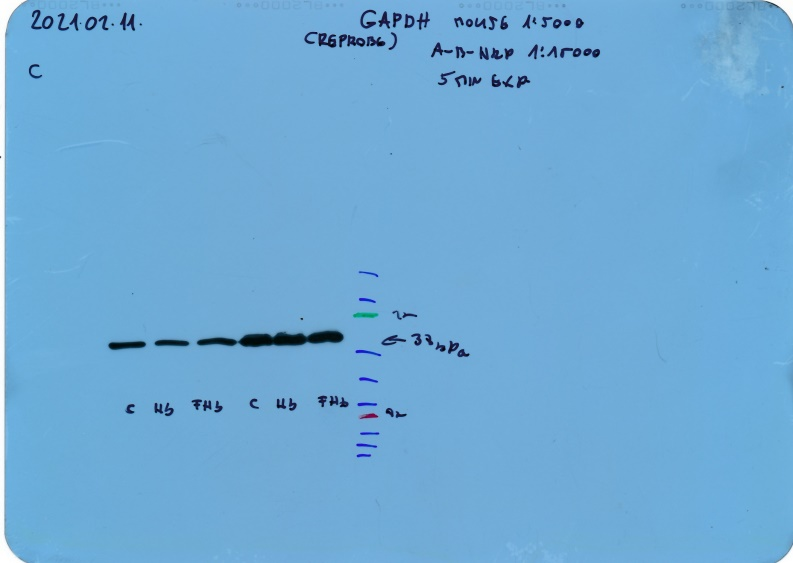 2021.02.11.
GAPDH MOUSE 1:5000
(REPROBE)
1:15000
5 MIN EXP
C
C Hb FHb C Hb FHb